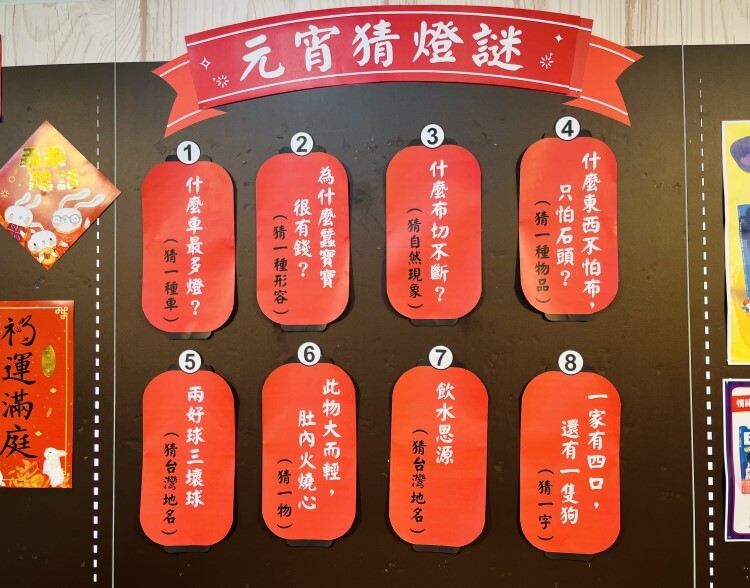 元宵猜燈謎
1
什麼車最多燈？
（猜一種車）
2
為什麼蠶寶寶
很有錢？
（猜一種形容）
3
什麼布切不斷？
（猜自然現象）
4
什麼東西不怕布，
只怕石頭？
（猜一種物品）
5
兩好球三壞球
（猜台灣地名）
6
此物大而輕，
肚內火燒心
（猜一物）
7
飲水思源
（猜台灣地名）
8
一家有四口，
還有一隻狗
（猜一字）
福運滿庭